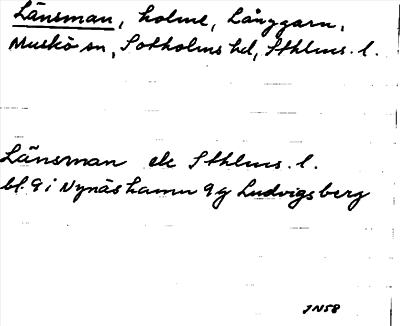 Länsman, holme, Långgarn,
Muskö sn, Sotholms hd, Sthlms. l.
Länsman ek Sthlms. l.
bl. 9 i Nynäshamn 9 g Ludvigsberg
JN58